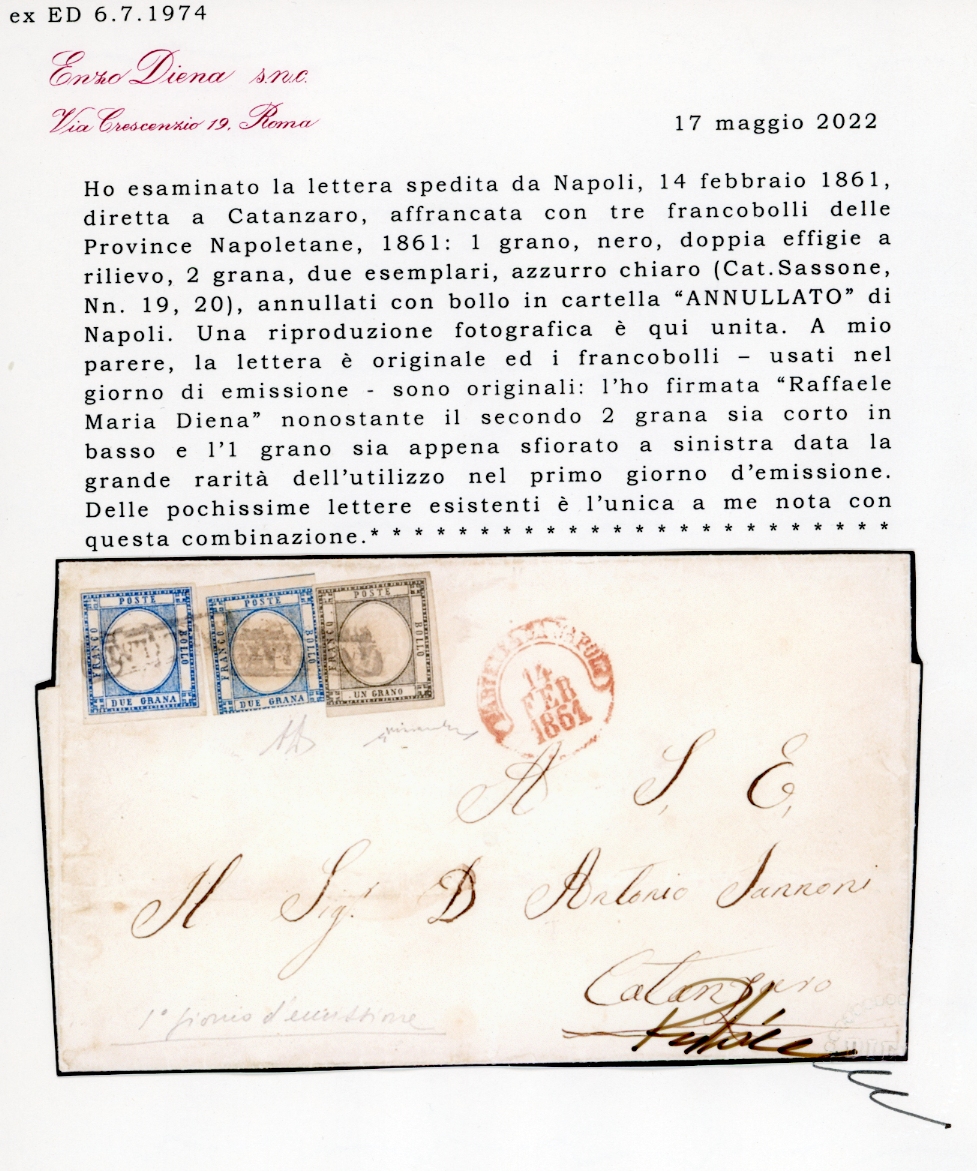 ex ED 6.7.1974
Enzo Diena s.n.c.
Via Crescenzio 19, Roma
17 maggio 2022
Ho esaminato la lettera spedita da Napoli, 14 febbraio 1861,
diretta a Catanzaro, affrancata con tre francobolli delle
Province Napoletane, 1861: 1 grano, nero, doppia effigie a
rilievo, 2 grana, due esemplari, azzurro chiaro (Cat.Sassone,
Nn. 19, 20), annullati con bollo in cartella “ANNULLATO” di
Napoli. Una riproduzione fotografica è qui unita. A mio
parere, la lettera è originale ed i francobolli – usati nel
giorno di emissione - sono originali: l’ho firmata “Raffaele
Maria Diena” nonostante il secondo 2 grana sia corto in
basso e l’1 grano sia appena sfiorato a sinistra data la
grande rarità dell’utilizzo nel primo giorno d’emissione.
Delle pochissime lettere esistenti è l’unica a me nota con
questa combinazione.* * * * * * * * * * * * * * * * * * * * * * * *
POSTE
FRANCO
BOLLO
DUE GRANA
POSTE
FRANCO
BOLLO
DUE GRANA
POSTE
FRANCO
BOLLO
UN GRANO
14
FEB
1861
A S. E.
Il Sig.r D Antonio Iannoni
Catanzaro
1° giorno d'emissione